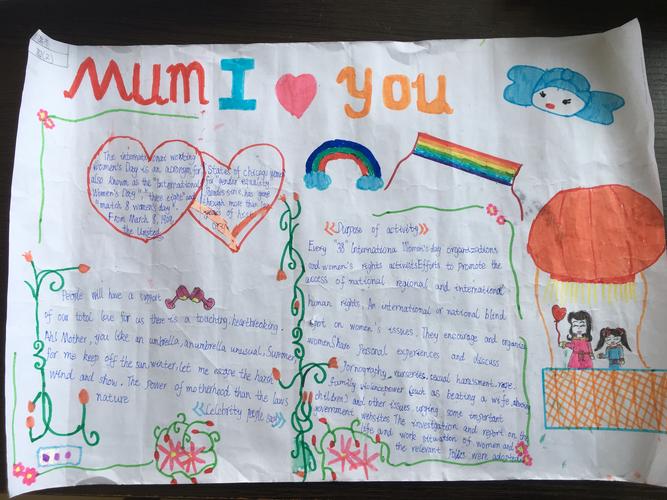 MUM I you
The international working
Women's Day is an acronym for
also known as the "International
Women's Day" "three eight" and
"match 8 women's day".
From March 8, 1909,
the United
States of chicago women
for gender equality
has gone
though more than
years of
《Purpose of activity》
Every "38" International Women's day organizations
and women's rights activists Efforts to promote the
access of national regional and international
human rights. An international or national blind
spot on women's issues. They encourage and organize
women share personal experiences and discuss
Pornography, nurseries, sexual harassment, rape,
family violence power (such as beating a wife, abusing
children) and other issues, urging some important
government websites The investigation and report on the
life and work situation of women and
the relevant Topics were adopted
People will have a support
of our total love for us there is a teaching, heartbreaking.
Ah! Mother, you like an umbrella, an umbrella unusual, Summer
for me keep off the sun, winter, let me escape the harsh
wind and show. The power of motherhood than the laws
nature
《Celebrity people say》